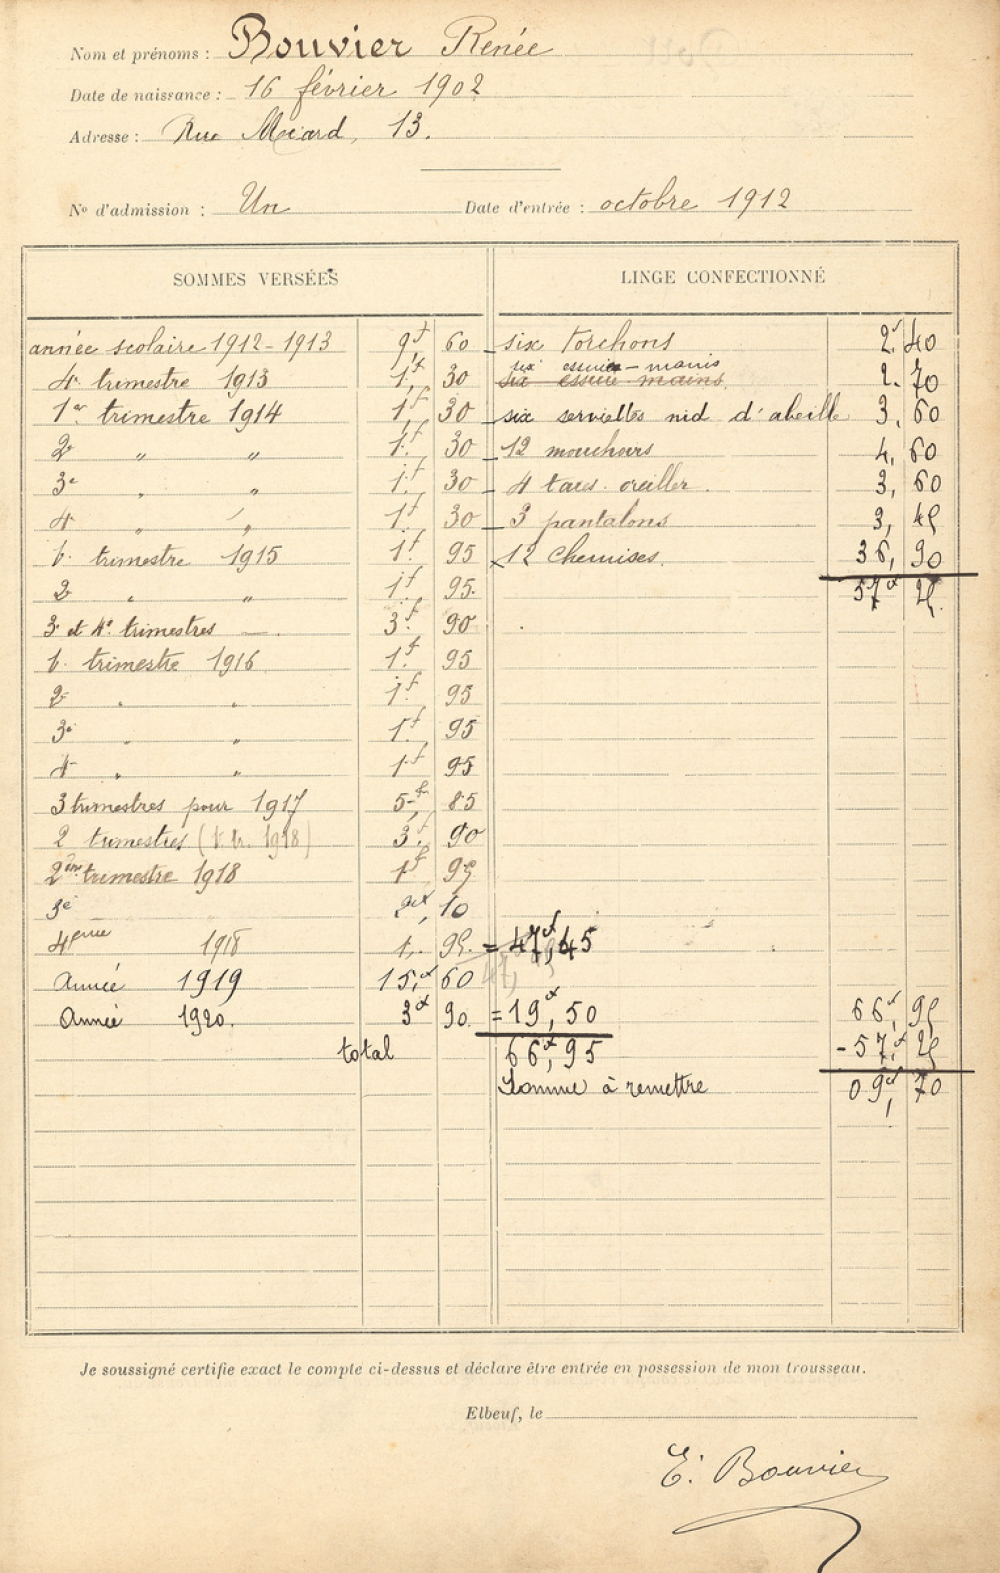 Nom et prénoms : Bouvier Renée
Date de naissance : 16 février 1902
Adresse : Rue Méard, 13.
N° d'admission : Un Date d'entrée : octobre 1912
SOMMES VERSÉES LINGE CONFECTIONNÉ
année scolaire 1912-1913 9f 60 six torchons 2f 40
six essuie-mains
4e trimestre 1913 1f 30 six essuie-mains 2. 70
1er trimestre 1914 1f 30 six serviettes nid d'abeille 3, 60
2e " " 1f 30 12 mouchoirs 4, 60
3e " " 1f 30 4 taies oreiller 3, 60
4e " " 1f 30 3 pantalons 3, 45
1er trimestre 1915 1f 95 12 chemises. 36, 90
2e " " 1f 95. 57f 25.
3e et 4e trimestres — 3f 90
1er trimestre 1916 1f 95
2e " " 1f 95
3e " " 1f 95
4e " " 1f 95
3 trimestres pour 1917 5f 85
2 trimestres (1. tr. 1918) 3f 90
2ème trimestre 1918 1f 95
3e 2f, 10
4ème 1918 1, 95. = 47f,45
Année 1919 15,f 60
Année 1920. 3f 90. = 19f,50 66f, 95
total 66f,95 - 57,f 25
Somme à remettre 09f, 70
Je soussigné certifie exact le compte ci-dessus et déclare être entrée en possession de mon trousseau.
Elbeuf, le
E. Bouvier